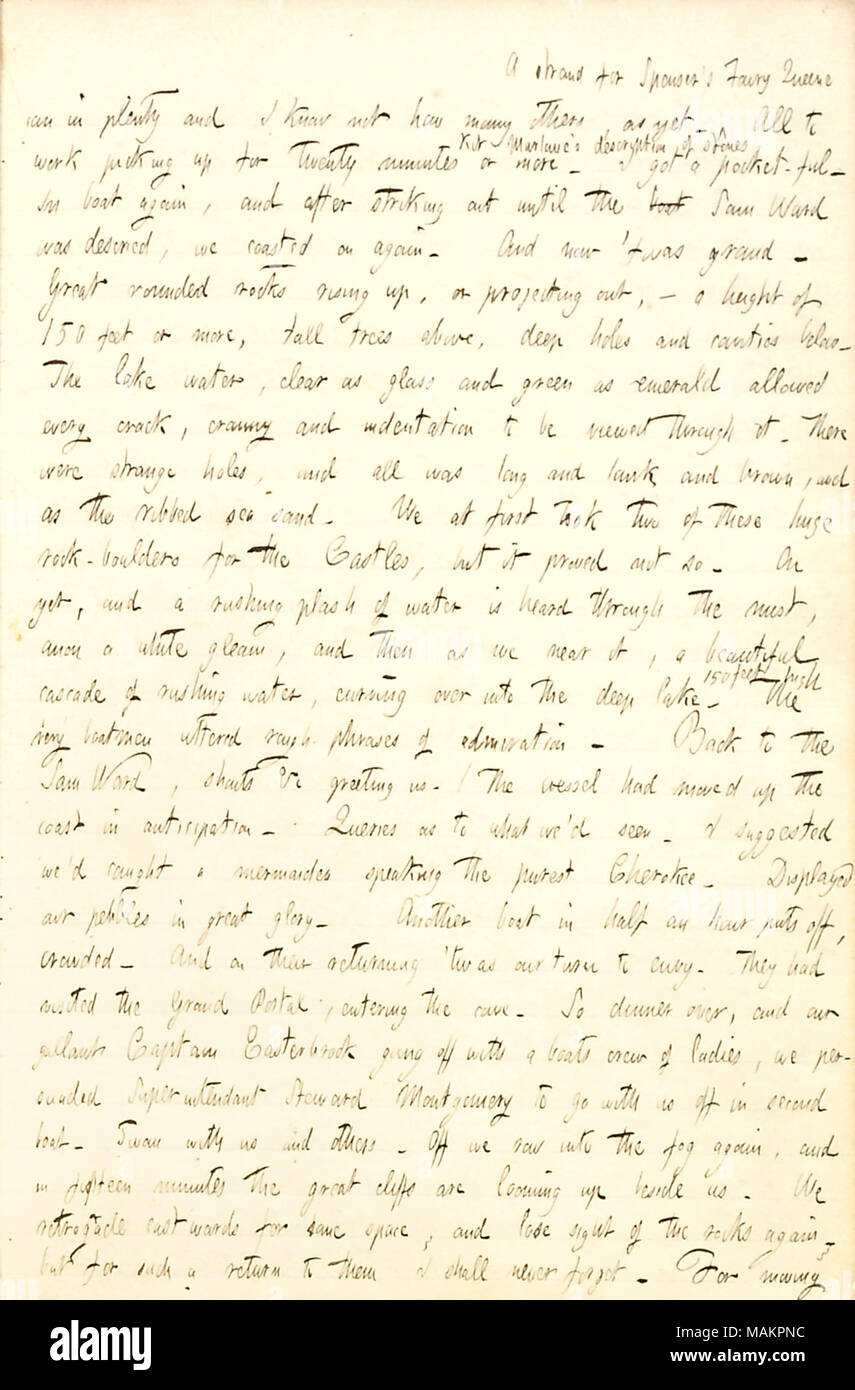 A strand for Spenser's Fairy Queene
ian in plenty and I know not how many others as yet. All to
Kit Marlowe's description of stones
work picking up for twenty minutes or more. I got a pocket-ful.
In boat again, and after striking out until the boat Sam Ward
was descried, we coasted on again. And now 'twas grand.
Great rounded rocks rising up, or projecting out, - a height of
150 feet or more, tall trees above, deep holes and cavities below.
The lake water, clear as glass and green as emerald allowed
every crack, cranny and indentation to be viewed through it. There
were strange holes, and all was long and lank and brown, and
as the ribbed sea sand. We at first took two of these huge
rock-boulders for the Castles, but it proved not so. On
yet, and a rushing plash of water is heard through the mist,
anon a white gleam, and then as we near it, a beautiful
150 feet high
cascade of rushing water, curving over into the deep lake. The
very boatmen uttered rough phrases of admiration. Back to the
Sam Ward, shouts &c greeting us. / The vessel had moved up the
coast in anticipation. Queries as to what we'd seen. I suggested
we'd caught a mermaiden speaking the purest Cherokee. Displayed
our pebbles in great glory. Another boat in half an hour puts off,
crowded. And on their returning 'twas our turn to envy. They had
visited the Grand Portal, entering the cave. So dinner over, and our
gallant Captain Easterbrook going off with a boats crew of ladies, we per-
suaded Superintendant Steward Montgomery to go with us off in second
boat. Swan with us and others. Off we row into the fog again, and
in fifteen minutes the great cliffs are looming up beside us. We
retrogade eastwards for some space, and lose sight of the rocks again,
but for such a return to them I shall never forget. For moving
alamy
Image ID: MAKPNC
www.alamy.com